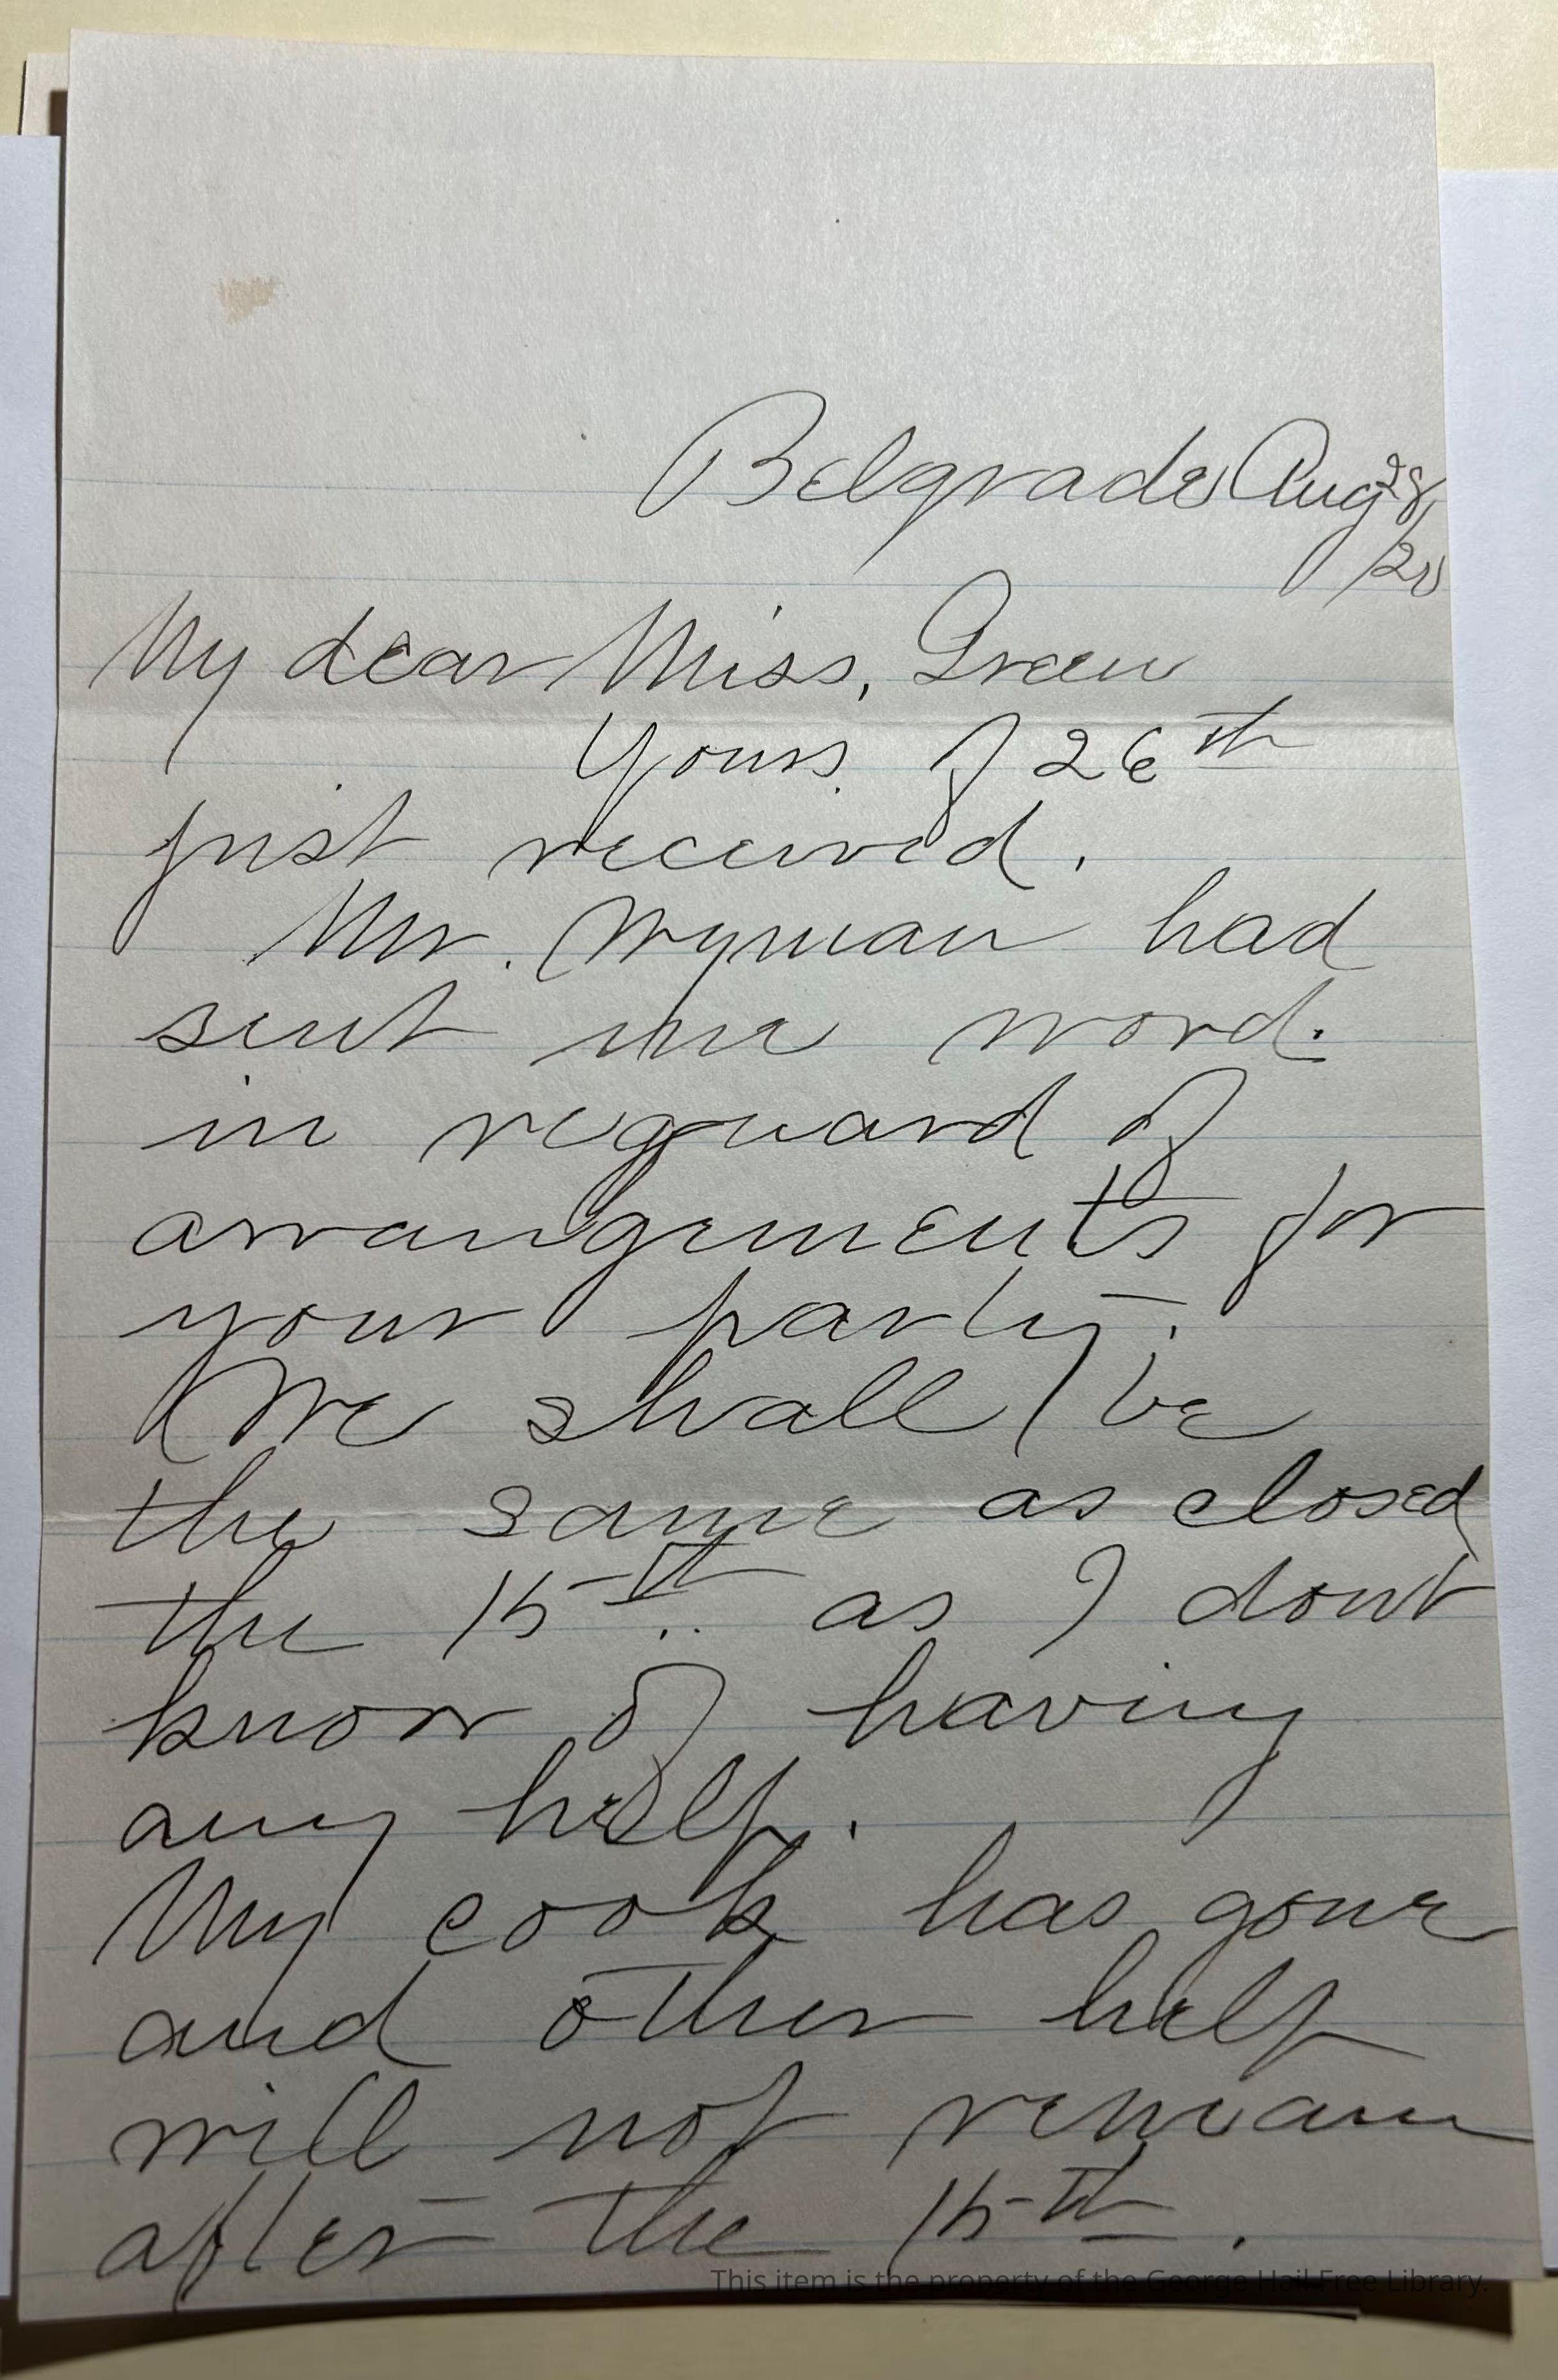 Belgrade Aug 28,
/20
My dear Miss, Green
Yours. of 26th
just received.
Mr. Wyman had
sent me word.
in reguard of
arrangements for
your party.
We shall be
the same as closed
the 15th.. as I dont
know of having
any help.
My cook has gone
and other help
will not remain
after the 15th.
This item is the property of the George Hail Free Library.